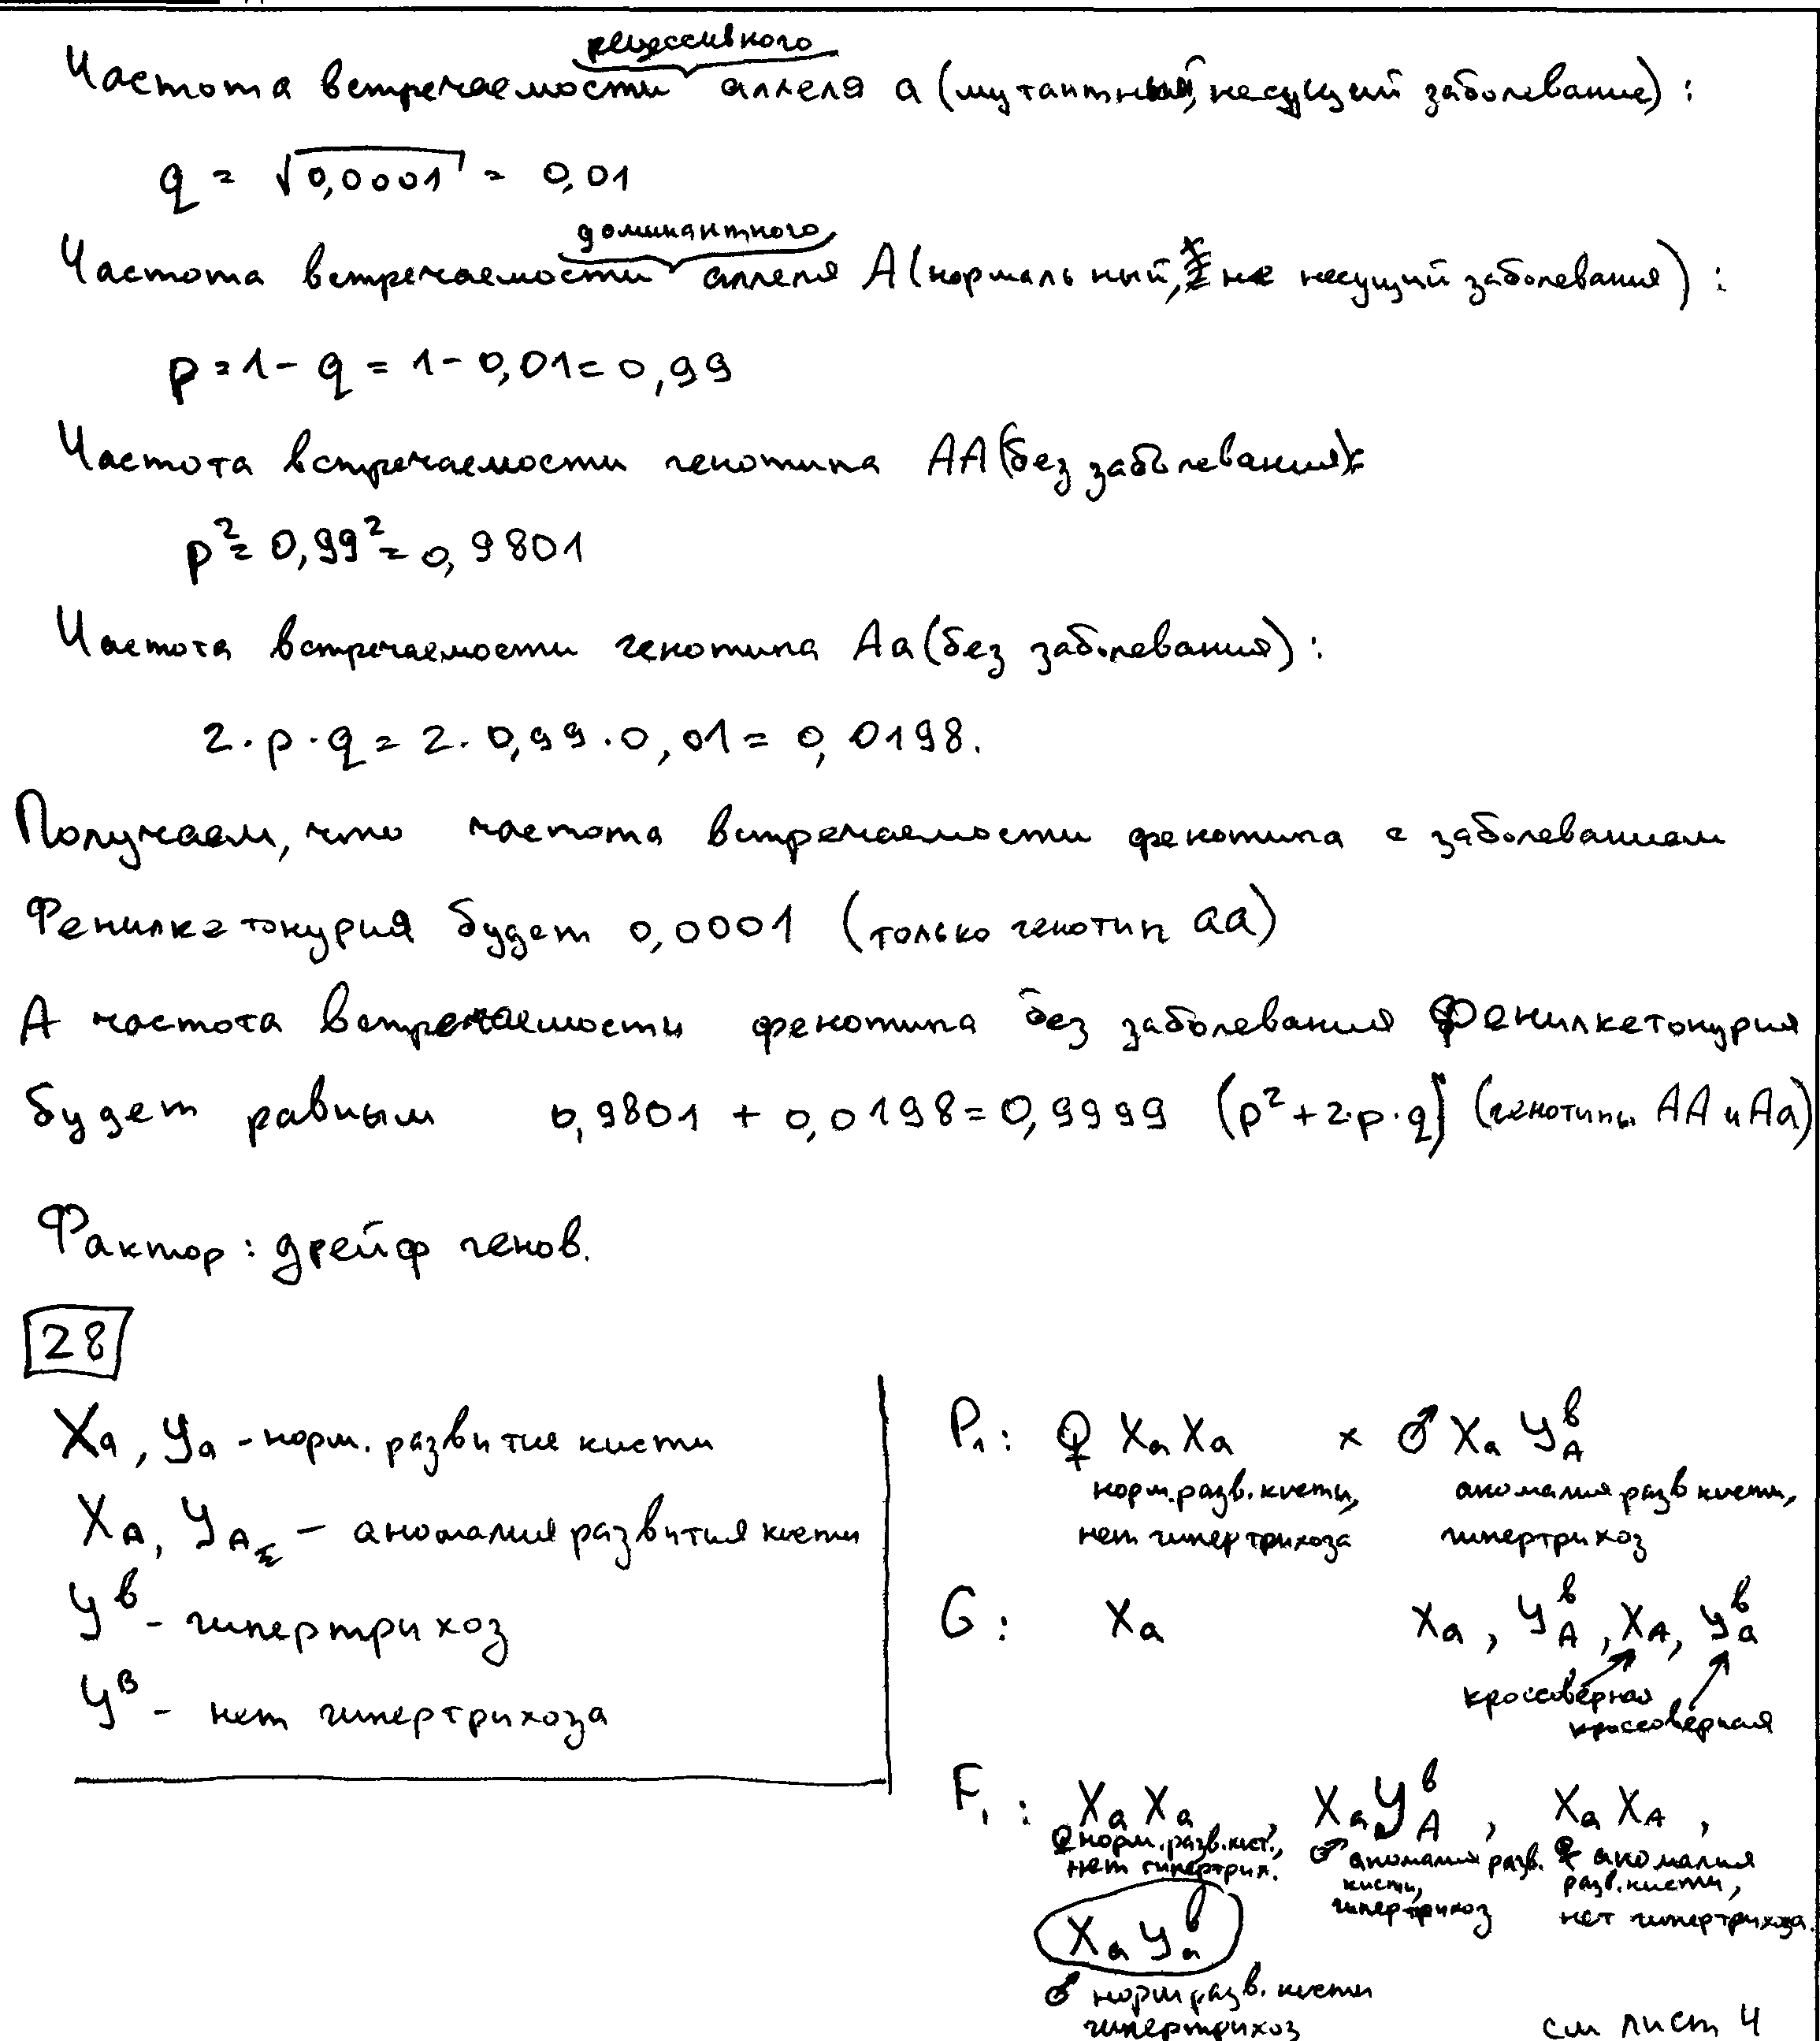 рецессивного
Частота встречаемости аллеля a (мутантный, несущий заболевание) :
q = √0,0001 = 0,01
доминантного
Частота встречаемости аллеля A (нормальный, не несущий заболевания) :
p = 1 - q = 1 - 0,01 = 0,99
Частота встречаемости генотипа AA (без заболевания):
p² = 0,99² = 0,9801
Частота встречаемости генотипа Aa (без заболевания) :
2 · p · q = 2 · 0,99 · 0,01 = 0,0198.
Получаем, что частота встречаемости фенотипа с заболеванием
Фенилкетонурия будет 0,0001 (только генотип aa)
А частота встречаемости фенотипа без заболевания Фенилкетонурия
будет равным 0,9801 + 0,0198 = 0,9999 (p² + 2·p·q) (генотипы AA и Aa)
Фактор : дрейф генов.
28
Xa, Ya - норм. развитие кисти
XA, YA - аномалия развития кисти
Yᵇ - гипертрихоз
Yᴮ - нет гипертрихоза
P₁ : ♀ Xa Xa × ♂ Xa YAᵇ
норм. разв. кисти, аномалия разв кисти,
нет гипертрихоза гипертрихоз
G : Xa Xa, YAᵇ, XA, Yaᵇ
кроссоверная
кроссоверная
F₁ : Xa Xa, Xa YAᵇ, Xa XA,
♀ норм. разв. кист., ♂ аномалия разв. ♀ аномалия
нет гипертрих. кисти, разв. кисти,
гипертрихоз нет гипертрихоза.
Xa Yaᵇ
♂ норм разв. кисти
гипертрихоз
см лист 4